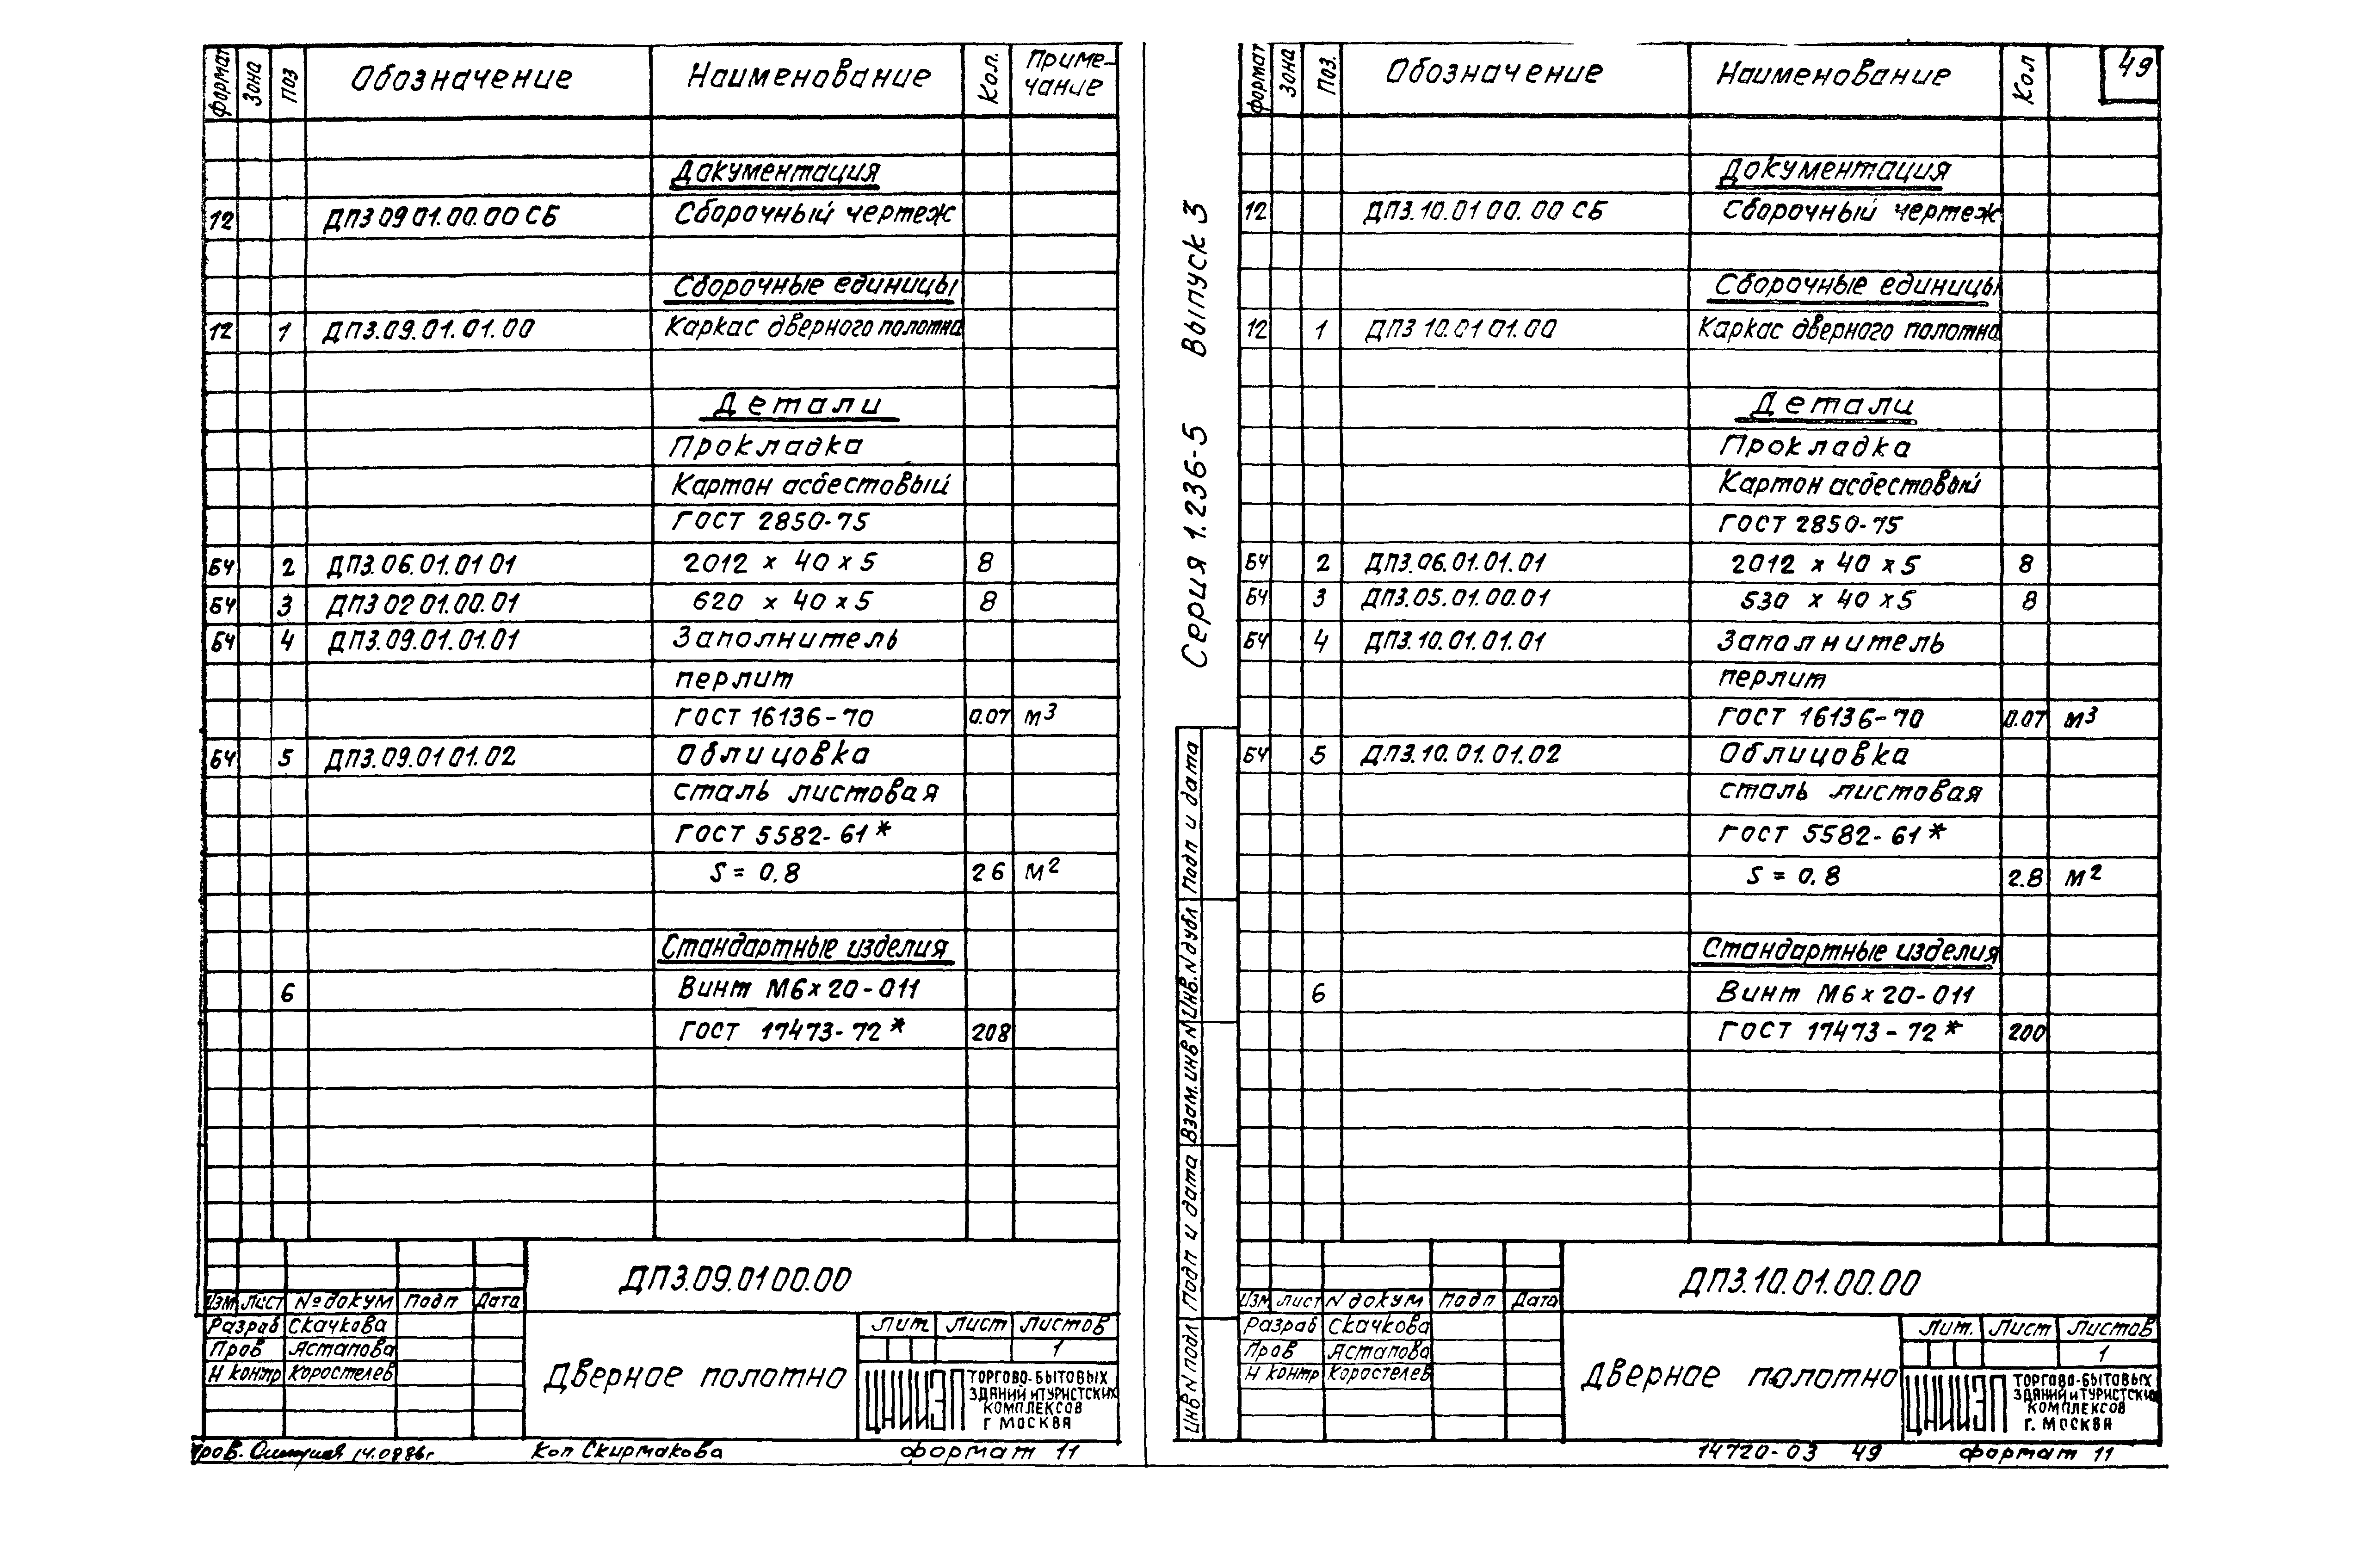 формат Зона Поз Обозначение Наименование Кол. Приме-
чание
Документация
12 ДП3 09 01.00.00 СБ Сборочный чертеж
Сборочные единицы
12 1 ДП3.09.01.01.00 Каркас дверного полотна
Детали
Прокладка
Картон асбестовый
ГОСТ 2850-75
БЧ 2 ДП3.06.01.01 01 2012 х 40 х 5 8
БЧ 3 ДП3 02 01.00.01 620 х 40 х 5 8
БЧ 4 ДП3.09.01.01.01 Заполнитель
перлит
ГОСТ 16136-70 0.07 м3
БЧ 5 ДП3.09.01 01.02 Облицовка
сталь листовая
ГОСТ 5582-61*
S = 0.8 2 6 м2
Стандартные изделия
6 Винт М6х20-011
ГОСТ 17473-72* 208
ДП3.09.01 00.00
Изм Лист № докум Подп Дата
Разраб Скачкова
Пров Астапова
Н контр Коростелев
Дверное полотно
Лит. Лист Листов
1
ЦНИИЭП
ТОРГОВО-БЫТОВЫХ
ЗДАНИЙ И ТУРИСТСКИХ
КОМПЛЕКСОВ
Г МОСКВА
Пров. 14.0986г Коп Скирмакова формат 11
Серия 1.236-5 Выпуск 3
формат Зона Поз. Обозначение Наименование Кол 49
Документация
12 ДП3.10.01 00. 00 СБ Сборочный чертеж
Сборочные единицы
12 1 ДП3 10.01 01.00 Каркас дверного полотна
Детали
Прокладка
Картон асбестовый
ГОСТ 2850-75
БЧ 2 ДП3.06.01.01.01 2012 х 40 х 5 8
БЧ 3 ДП3.05.01.00.01 530 х 40 х 5 8
БЧ 4 ДП3.10.01.01.01 Заполнитель
перлит
ГОСТ 16136-70 0.07 м3
БЧ 5 ДП3.10.01.01.02 Облицовка
сталь листовая
ГОСТ 5582-61*
S = 0.8 2.8 м2
Стандартные изделия
6 Винт М6х20-011
ГОСТ 17473-72* 200
Инв N подл Подп и дата Взам.инв N Инв.N дубл Подп и дата
ДП3.10.01.00.00
Изм Лист N докум Подп Дата
Разраб Скачкова
Пров Астапова
Н контр Коростелев
Дверное полотно
Лит. Лист Листов
1
ЦНИИЭП
ТОРГОВО-БЫТОВЫХ
ЗДАНИЙ И ТУРИСТСКИХ
КОМПЛЕКСОВ
Г. МОСКВА
14720-03 49 формат 11